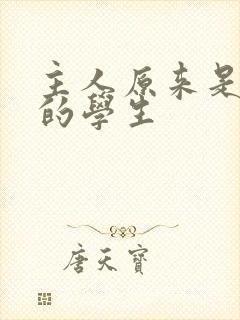 主人原来是
的學生
唐天寶